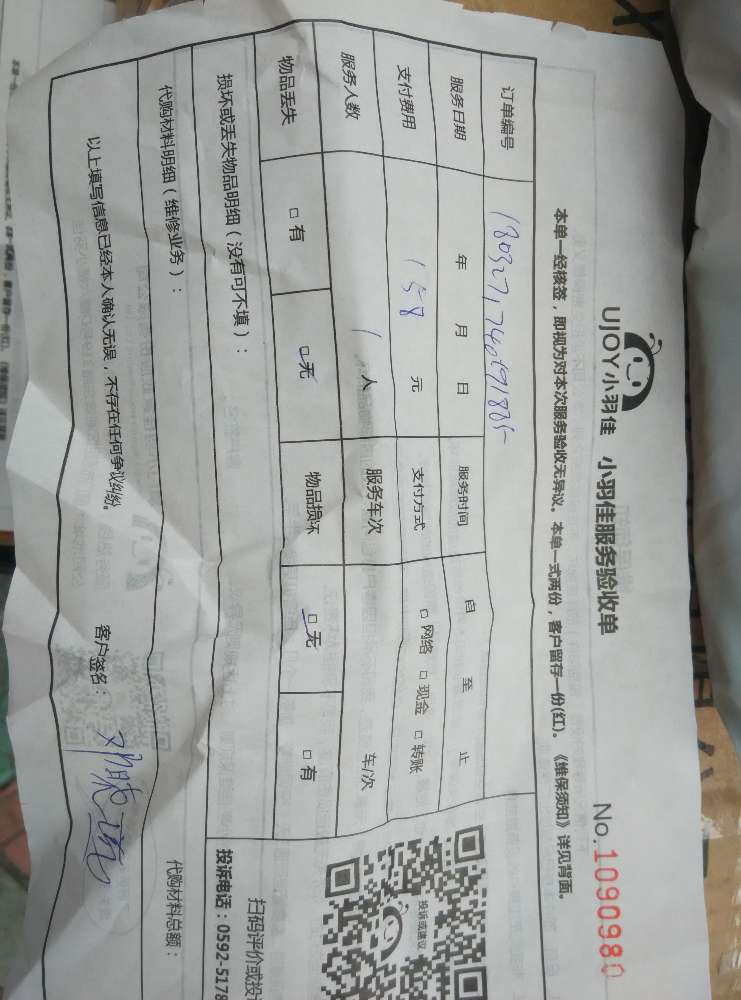 UJOY小羽佳 小羽佳服务验收单
No.1090980
本单一经核签，即视为对本次服务验收无异议。本单一式两份，客户留存一份(红)。《维保须知》详见背面。
订单编号
服务日期 年 月 日 服务时间 自 至 止
支付费用 158 元 支付方式 □ 网络 □ 现金 □ 转账
服务人数 1 人 服务车次 车/次
物品丢失 □ 有 □ 无 物品损坏 □ 无 □ 有
损坏或丢失物品明细（没有可不填）：
代购材料明细（维修业务）： 代购材料总额：
以上填写信息已经本人确认无误，不存在任何争议纠纷。 客户签名：
投诉或建议
扫码评价或投
投诉电话：0592-5178